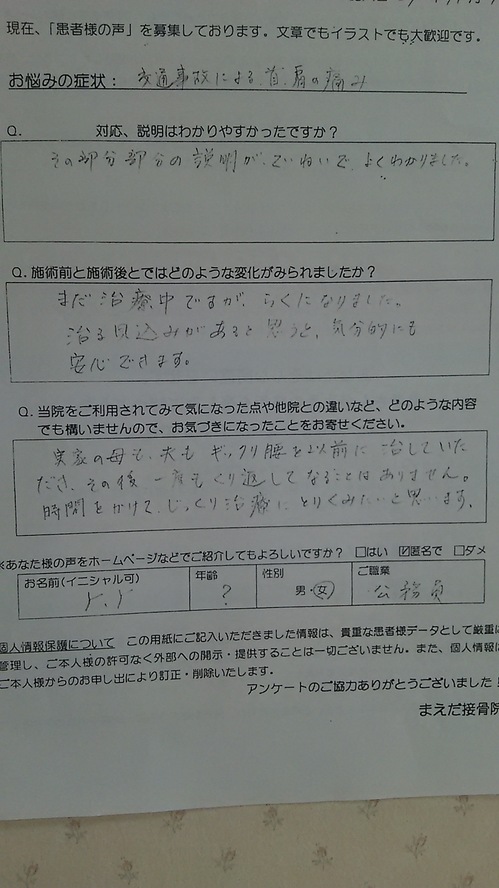 現在、「患者様の声」を募集しております。文章でもイラストでも大歓迎です。
お悩みの症状: 交通事故による、首、肩の痛み
Q. 対応、説明はわかりやすかったですか？
その部分部分の説明が、ていねいで、よくわかりました。
Q. 施術前と施術後とではどのような変化がみられましたか？
まだ治療中ですが、らくになりました。
治る見込みがあると思うと、気分的にも
安心できます。
Q. 当院をご利用されてみて気になった点や他院との違いなど、どのような内容
でも構いませんので、お気づきになったことをお寄せください。
実家の母も、夫も ギックリ腰を以前に治していた
だき、その後 一度もくり返してなることはありません。
時間をかけて、じっくり治療にとりくみたいと思います。
※あなた様の声をホームページなどでご紹介してもよろしいですか？ □はい ☑匿名で □ダメ
お名前(イニシャル可) 年齢 性別 ご職業
? 男・女 公務員
個人情報保護について この用紙にご記入いただきました情報は、貴重な患者様データとして厳重に
管理し、ご本人様の許可なく外部への開示・提供することは一切ございません。また、個人情報は
ご本人様からのお申し出により訂正・削除いたします。
アンケートのご協力ありがとうございました！
まえだ接骨院